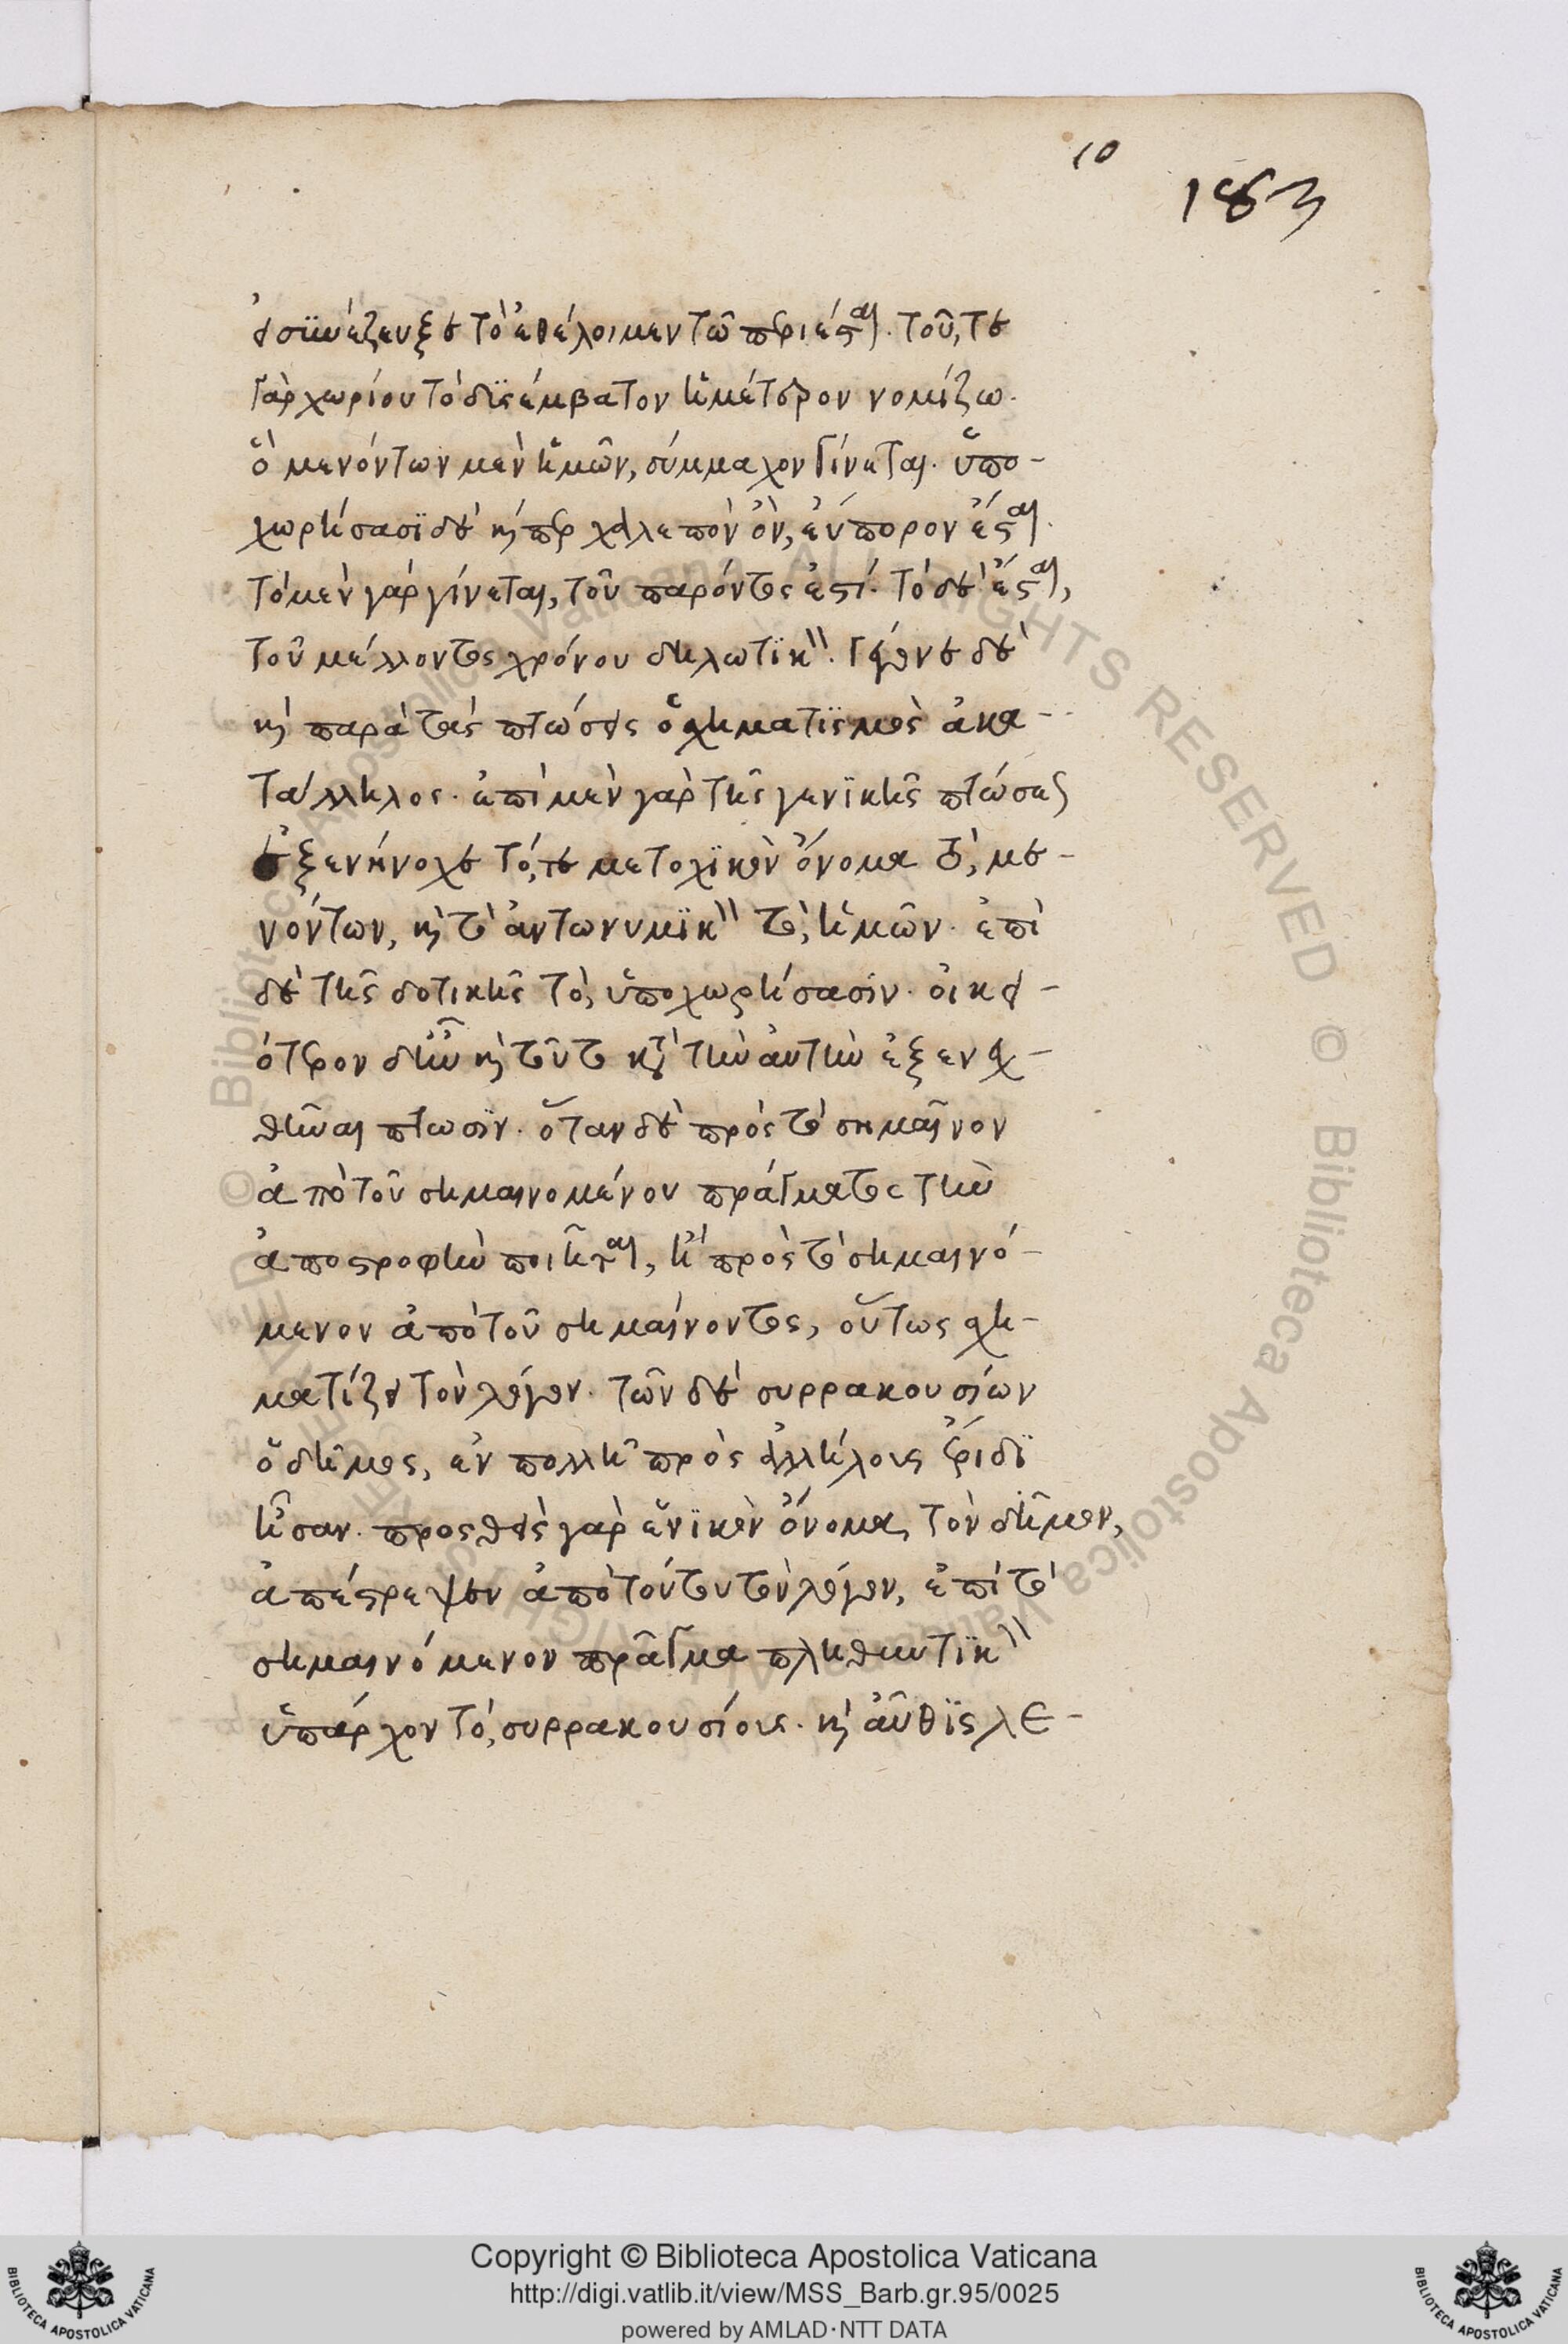 10
183
εἰ συνέζευξε τὸ ἐθέλοιμεν τῷ περιέσται. τοῦ, τε
γὰρ χωρίου τὸ δυσέμβατον ἡμέτερον νομίζω.
ὃ μενόντων μὲν ἡμῶν, σύμμαχον γίνεται. ὑπο-
χωρήσασι δὲ καίπερ χαλεπὸν ὂν, εὔπορον ἔσται.
τὸ μὲν γὰρ γίνεται, τοῦ παρόντος ἐστί. τὸ δὲ ἔσται,
τοῦ μέλλοντος χρόνου δηλωτικόν. γέγονε δὲ
καὶ παρὰ τὰς πτώσεις ὁ σχηματισμὸς ἀκα-
τάλληλος. ἐπὶ μὲν γὰρ τῆς γενικῆς πτώσεως
ἐξενήνοχε τό, τε μετοχικὸν ὄνομα τὸ, με-
νόντων, καὶ τὸ ἀντωνυμικὸν τὸ, ἡμῶν. ἐπὶ
δὲ τῆς δοτικῆς τὸ, ὑποχωρήσασιν. οἰκει-
ότερον δ' ἦν καὶ τοῦτο κατὰ τὴν αὐτὴν ἐξενεχ-
θῆναι πτῶσιν. ὅταν δὲ πρὸς τὸ σημαῖνον
ἀπὸ τοῦ σημαινομένου πράγματος τὴν
ἀποστροφὴν ποιῆται, ἢ πρὸς τὸ σημαινό-
μενον ἀπὸ τοῦ σημαίνοντος, οὕτως σχη-
ματίζει τὸν λόγον. τῶν δὲ συρρακουσίων
ὁ δῆμος, ἐν πολλῇ πρὸς ἀλλήλους ἔριδι
ἦσαν. προσθεὶς γὰρ ἑνικὸν ὄνομα, τὸν δῆμον,
ἀπέστρεψεν ἀπὸ τούτου τὸν λόγον, ἐπὶ τὸ
σημαινόμενον πρᾶγμα πληθυντικὸν
ὑπάρχον τὸ, συρρακουσίους. καὶ αὖθις λε-
© Biblioteca Apostolica Vaticana ALL RIGHTS RESERVED © Biblioteca Apostolica Vaticana
Copyright © Biblioteca Apostolica Vaticana
http://digi.vatlib.it/view/MSS_Barb.gr.95/0025
powered by AMLAD·NTT DATA
BIBLIOTECA APOSTOLICA VATICANA
BIBLIOTECA APOSTOLICA VATICANA